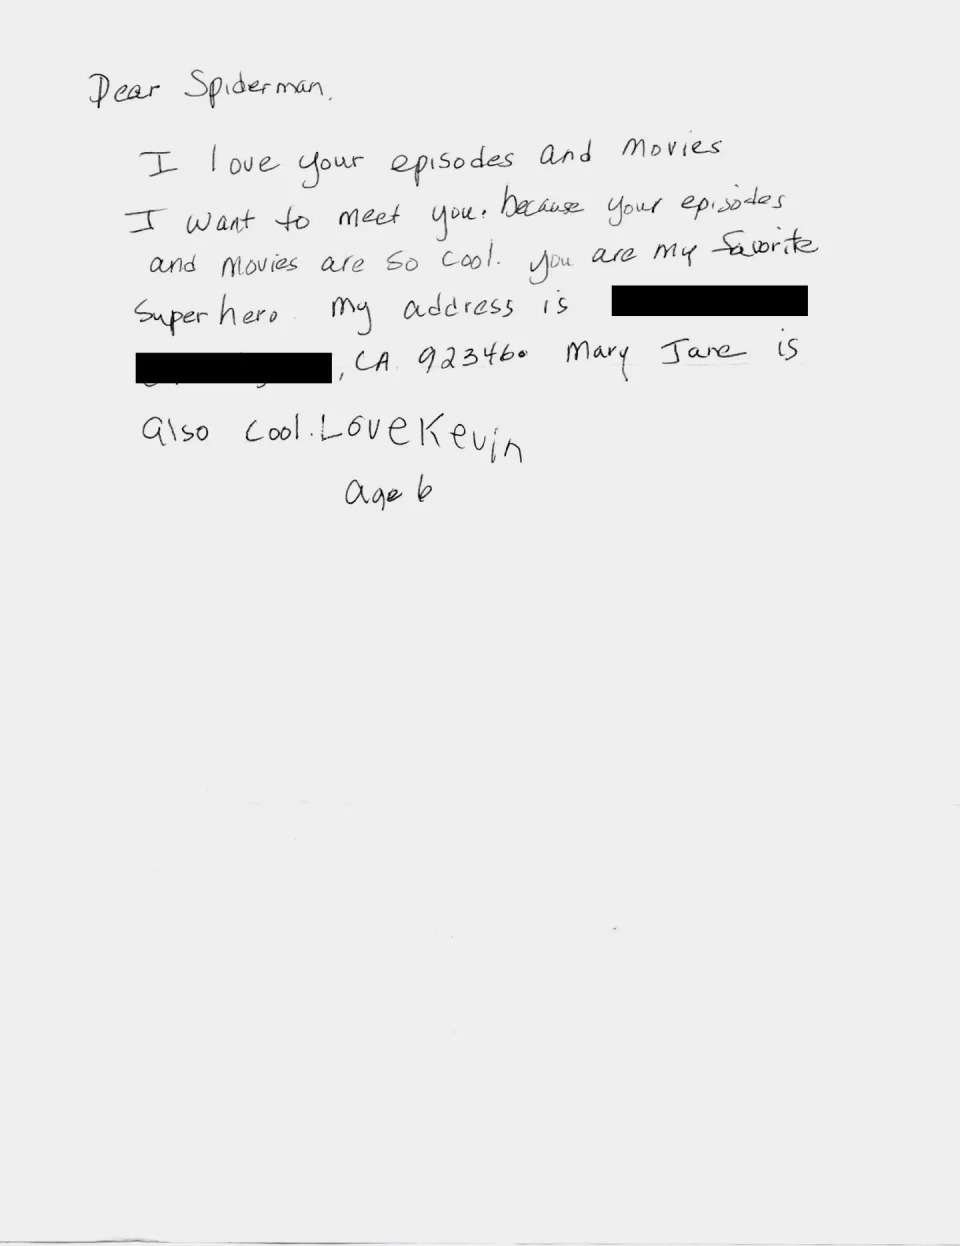 Dear Spiderman.
I love your episodes and movies
I want to meet you. because your episodes
and movies are so cool. you are my favorite
Super hero. My address is
, CA. 92346. Mary Jane is
also cool. Love Kevin
age 6